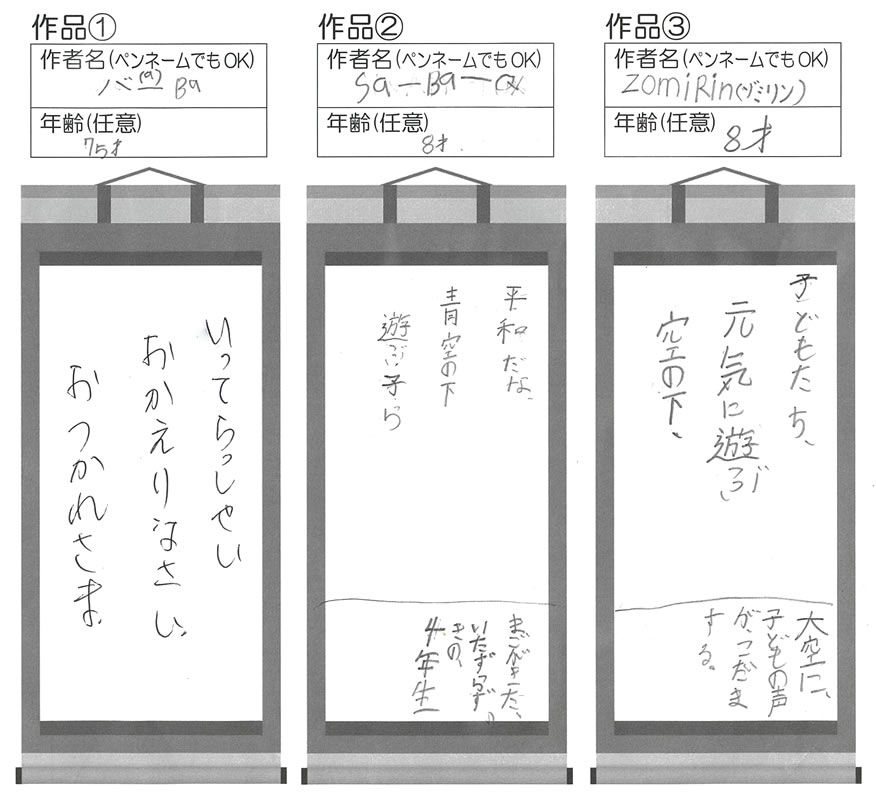 作品①
作者名(ペンネームでもOK)
バー(a) Ba
年齢(任意)
75才
いってらっしゃい
おかえりなさい。
おつかれさま。
作品②
作者名(ペンネームでもOK)
Sa-Ba-
年齢(任意)
8才.
平和だな、
青空の下
遊ぶ子ら
まごがきた、
いたずらず
きの、
4年生
作品③
作者名(ペンネームでもOK)
ZomiRin(ゾミリン)
年齢(任意)
8才
子どもたち、
元気に遊ぶ
空の下、
大空に、
子どもの声
が、こだま
する。